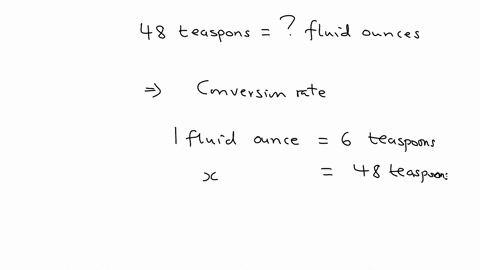 48 teaspons = ? fluid ounces
⇒ Conversion rate
1 fluid ounce = 6 teaspoons
x = 48 teaspoons